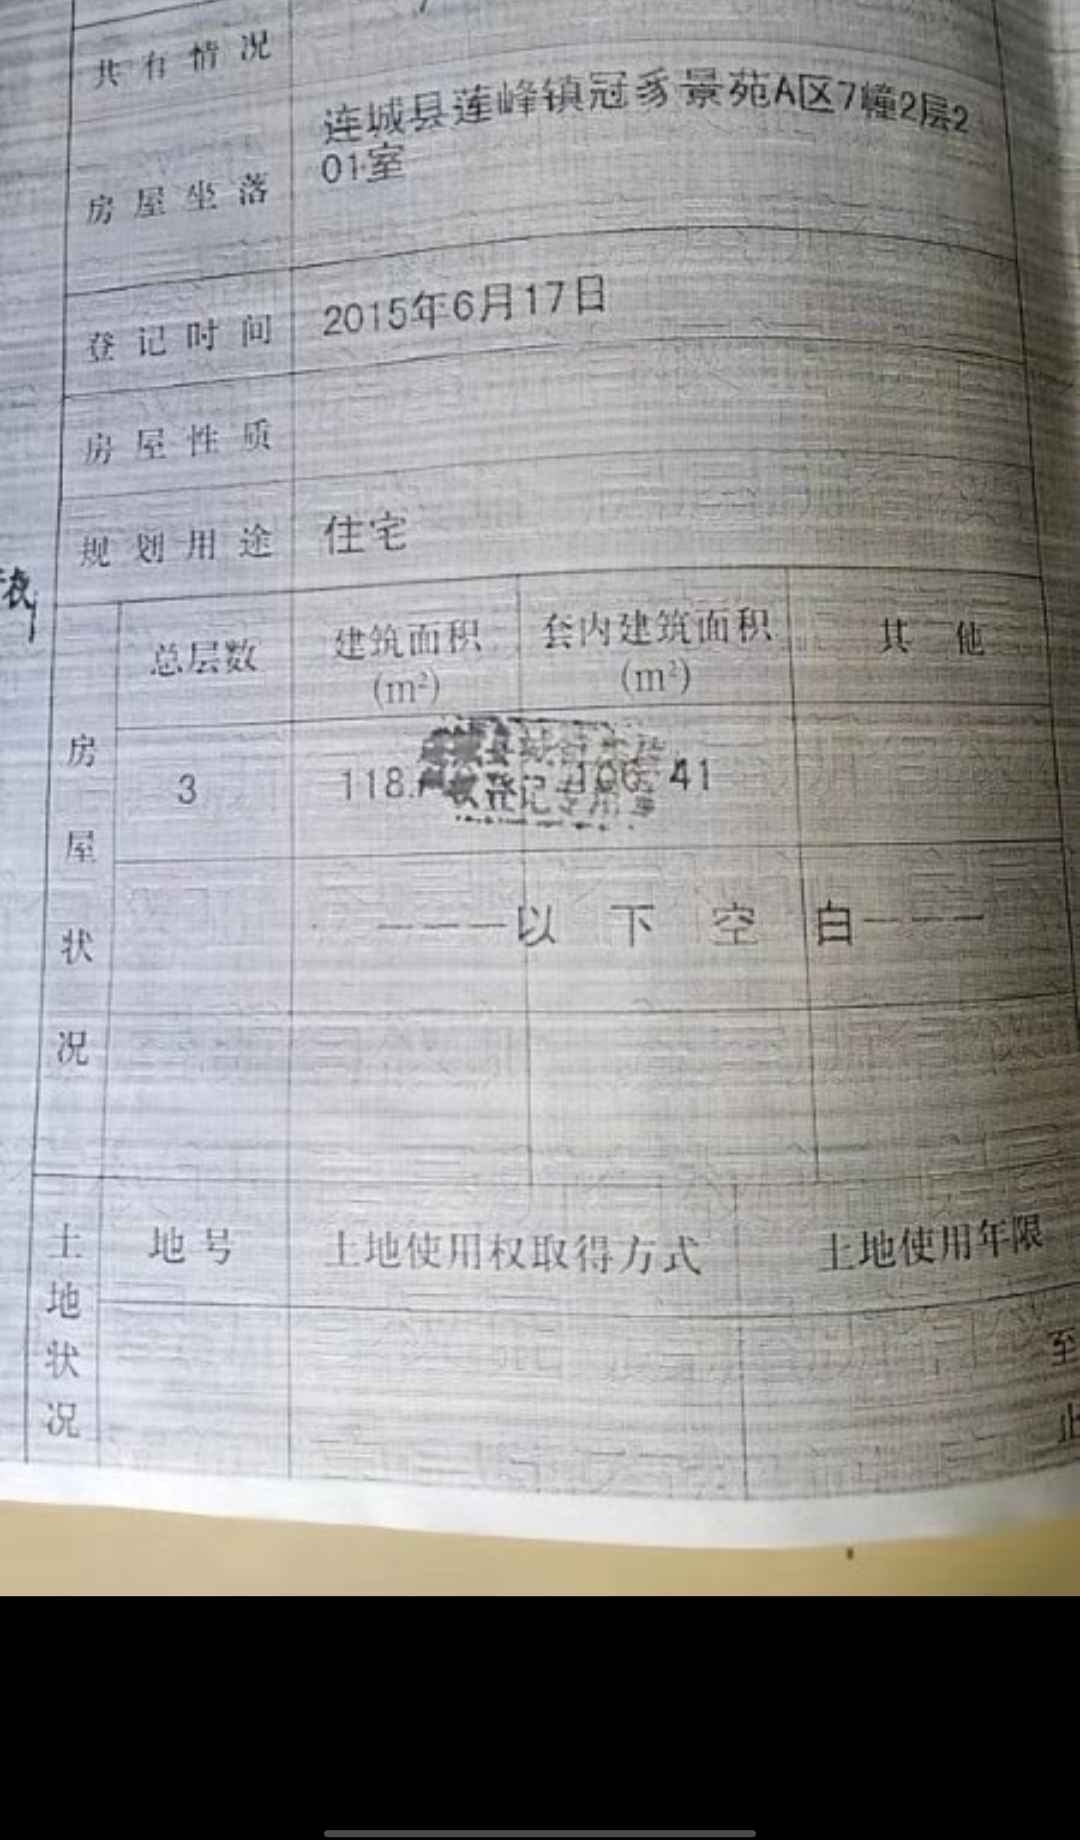 共有情况
连城县莲峰镇冠豸景苑A区7幢2层2
01室
房屋坐落
登记时间 2015年6月17日
房屋性质
规划用途 住宅
房屋状况
总层数 建筑面积(m²) 套内建筑面积(m²) 其他
3 118. 106.41
产权登记专用章
———以下空白———
土地状况
地号 土地使用权取得方式 土地使用年限
至
止